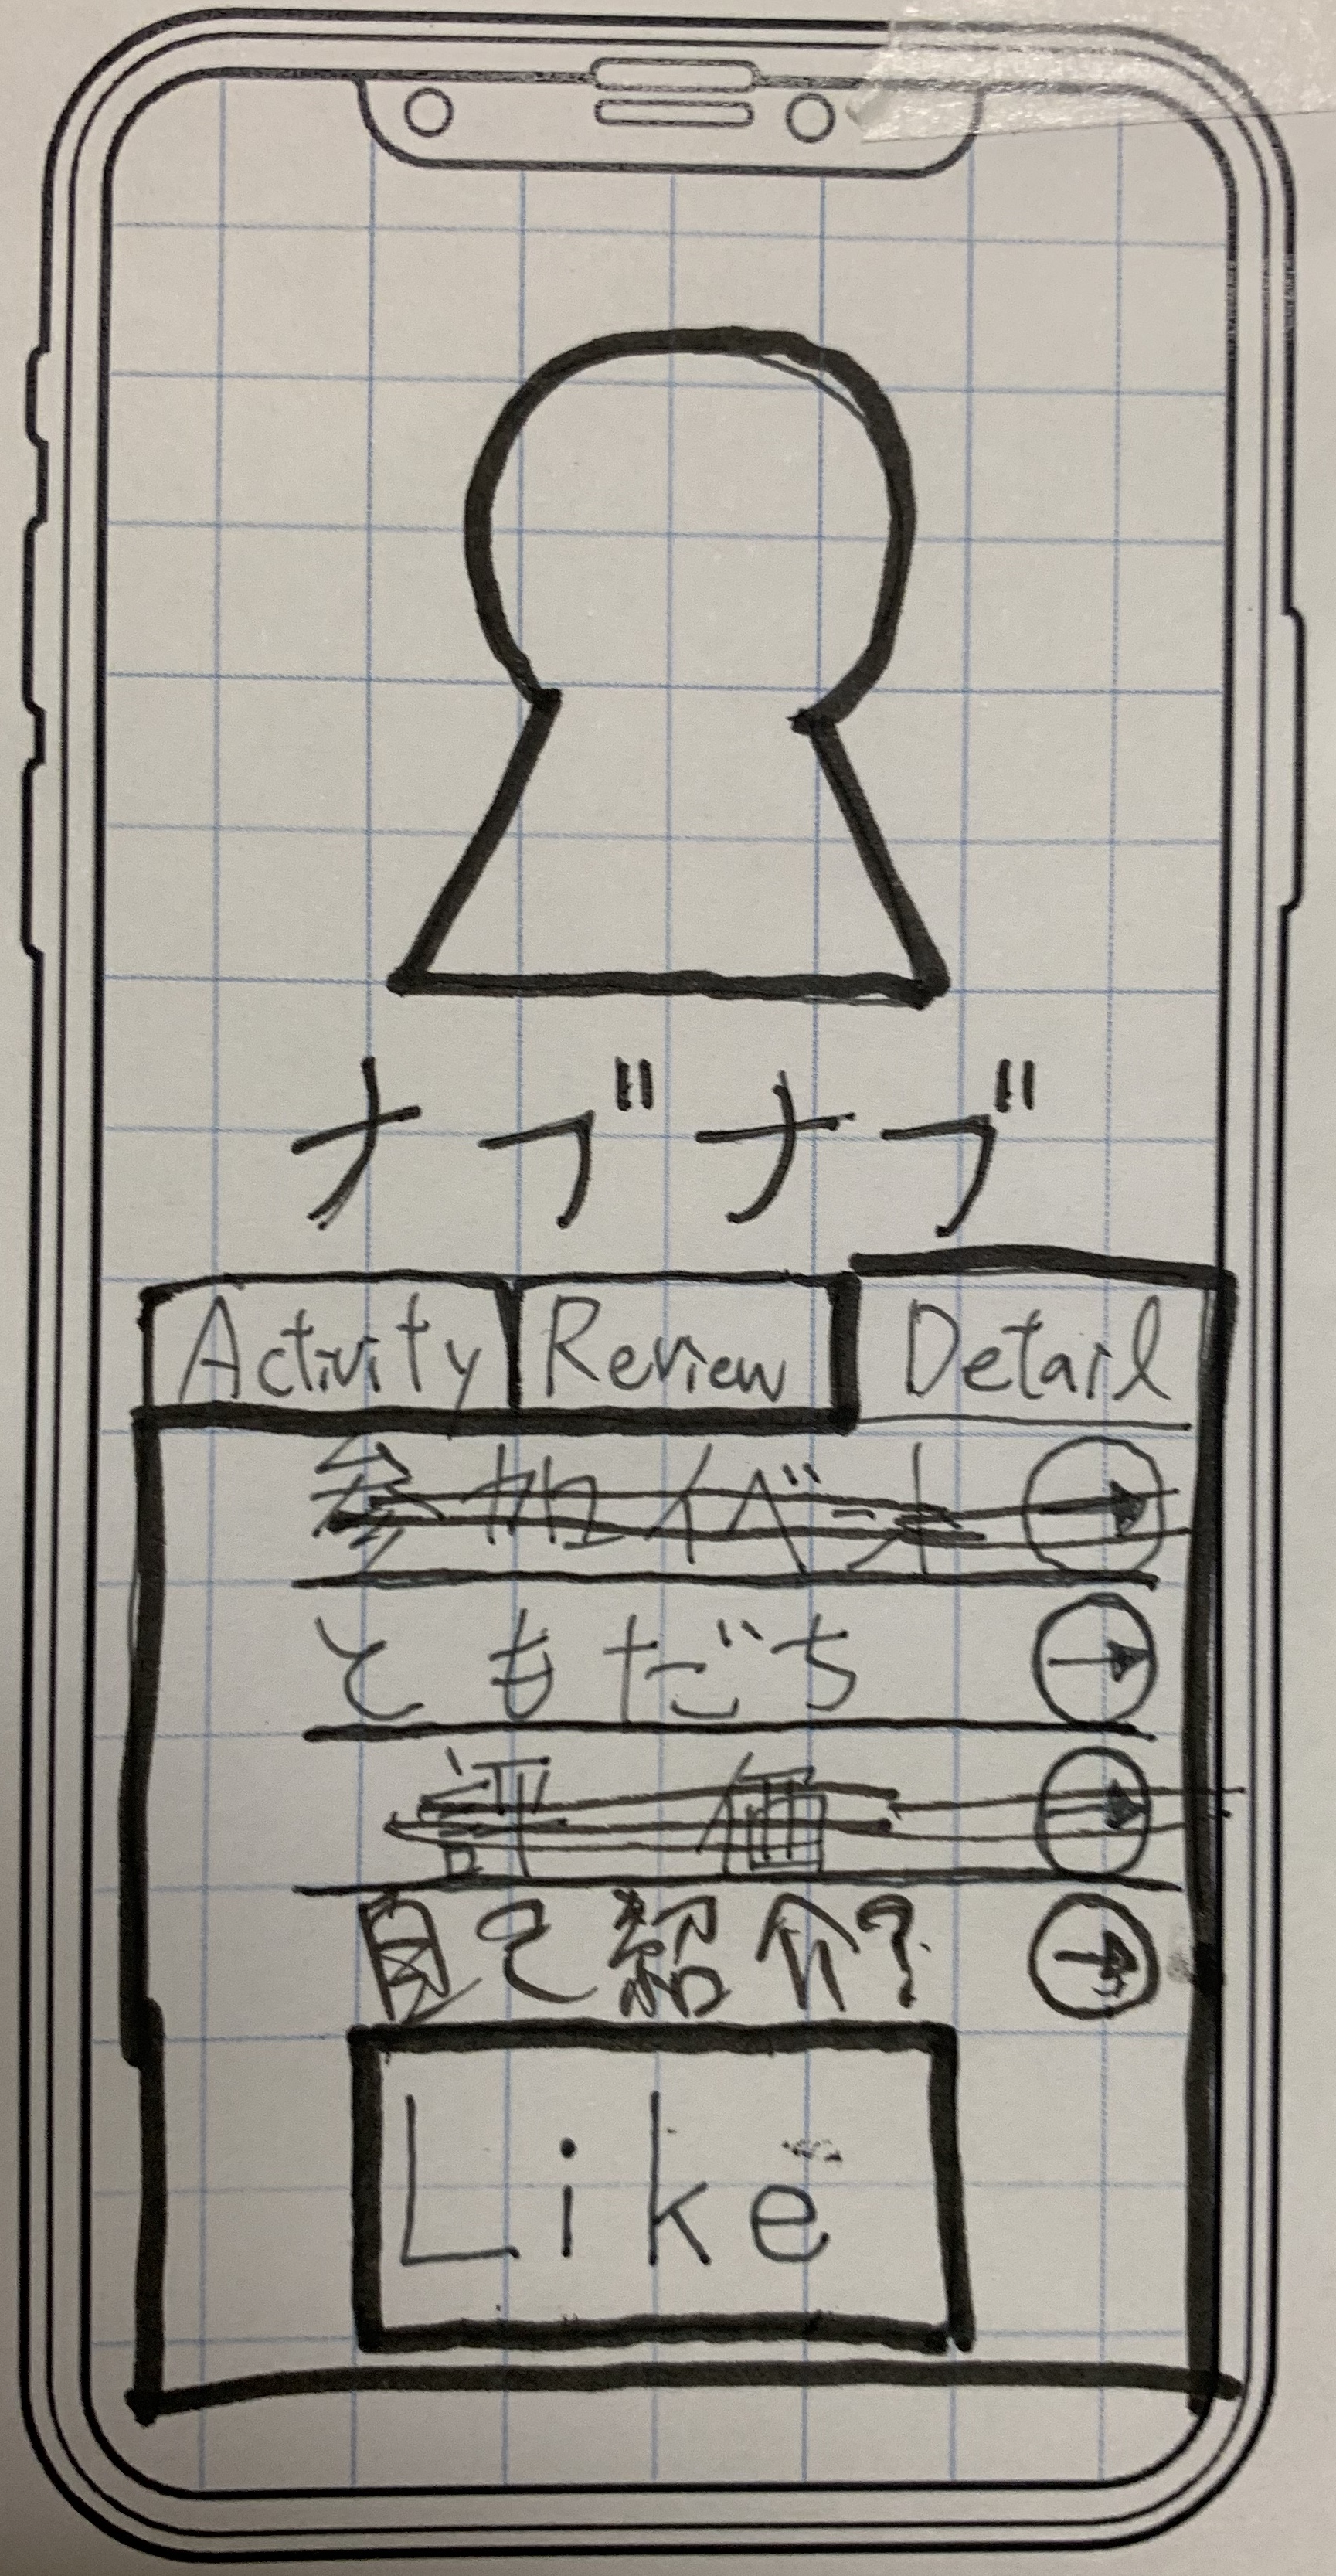 ナブナブ
Activity Review Detail
参加イベント
ともだち
評価
自己紹介?
Like